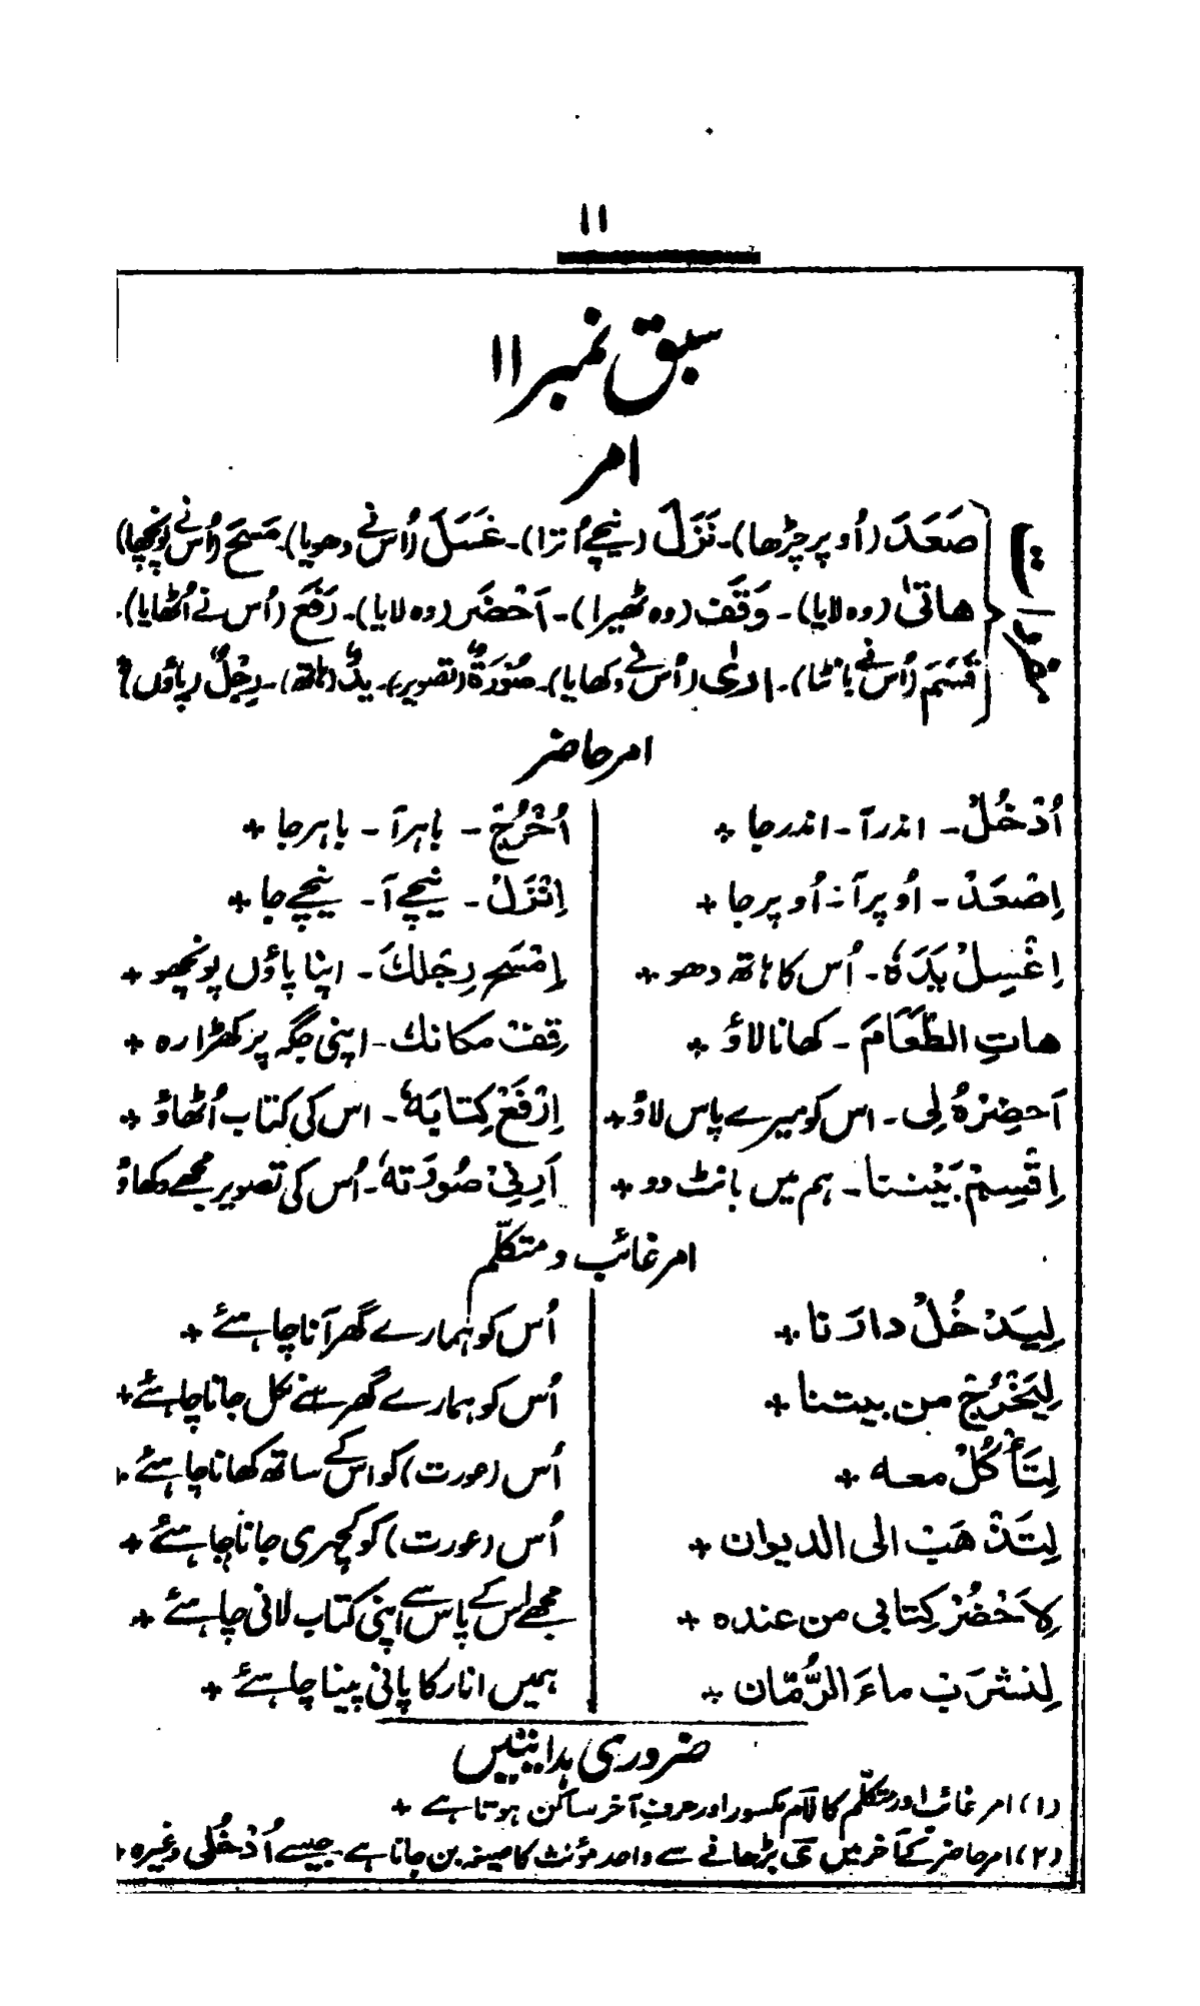 ۱۱
سبق نمبر ۱۱
امر
مفردات
صَعَدَ (اُوپر چڑھا)۔ نَزَلَ (نیچے اُترا)۔ غَسَلَ (اُس نے دھویا)۔ مَسَحَ (اُس نے پونچھا)
هاتیٰ (وہ لایا)۔ وَقَفَ (وہ ٹھیرا)۔ اَحْضَرَ (وہ لایا)۔ رَفَعَ (اُس نے اُٹھایا)۔
قَسَمَ (اُس نے بانٹا)۔ اریٰ (اُس نے دکھایا)۔ صُوْرَةٌ (تصویر)۔ یدٌ (ہاتھ)۔ رِجْلٌ (پاؤں)
امر حاضر
اُدْخُلْ۔ اندر آ۔ اندر جا +
اُخْرُجْ۔ باہر آ۔ باہر جا +
اِصْعَدْ۔ اُوپر آ۔ اُوپر جا +
اِنْزَلْ۔ نیچے آ۔ نیچے جا +
اِغْسِلْ یَدَہٗ۔ اُس کا ہاتھ دھو +
اِمْسَحْ رِجَلكَ۔ اپنا پاؤں پونچھو +
هاتِ الطَّعَامَ۔ کھانا لاؤ +
قِفْ مکانك۔ اپنی جگہ پر کھڑا رہ +
اَحضِرْہُ لِی۔ اس کو میرے پاس لاؤ +
اِرْفَعْ کِتابَهٗ۔ اس کی کتاب اُٹھاؤ +
اِقْسِمْ بَیْننا۔ ہم میں بانٹ دو +
اَرِنِیْ صُورَتهٗ۔ اُس کی تصویر مجھے دکھاؤ
امر غائب و متکلّم
لِیَدْخُلْ دارَنا +
اُس کو ہمارے گھر آنا چاہئے +
لِیَخْرُجْ من بیتنا +
اُس کو ہمارے گھر سے نکل جانا چاہئے +
لِتَأْكُلْ معه +
اُس (عورت) کو اس کے ساتھ کھانا چاہئے +
لِتَذْهَبْ الی الدیوان +
اُس (عورت) کو کچہری جانا چاہئے +
لِاَحْضُرْ کِتابی من عنده +
مجھے اس کے پاس سے اپنی کتاب لانی چاہئے +
لِنشرَبْ ماءَ الرُّمّان +
ہمیں انار کا پانی پینا چاہئے +
ضروری ہدایتیں
(۱) امر غائب اور متکلّم کا لام مکسور اور حرفِ آخر ساکن ہوتا ہے +
(۲) امر حاضر کے آخر میں ی بڑھانے سے واحد مؤنث کا صیغہ بن جاتا ہے۔ جیسے اُدْخُلی وغیرہ +